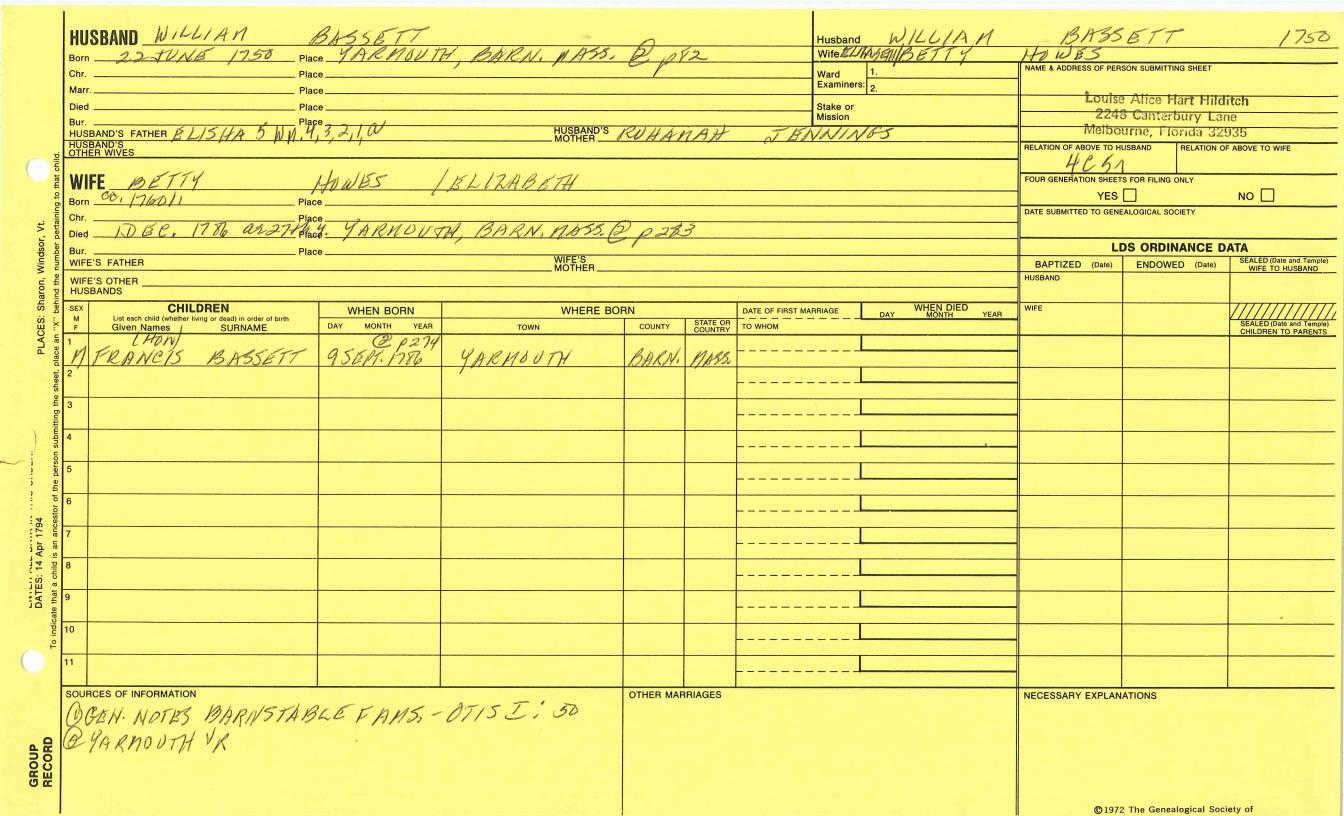 HUSBAND WILLIAM BASSETT
Born 22 JUNE 1750 Place YARMOUTH, BARN. MASS. @ p82
Chr. Place
Marr. Place
Died Place
Bur. Place
HUSBAND'S FATHER ELISHA 5 Wm. 4, 3, 2, 1, HUSBAND'S MOTHER RUHAMAH JENNINGS
HUSBAND'S OTHER WIVES
Husband WILLIAM BASSETT 1750
Wife ELIZABETH/BETTY HOWES
Ward Examiners: 1.
2.
Stake or Mission
NAME & ADDRESS OF PERSON SUBMITTING SHEET
Louise Alice Hart Hilditch
2248 Canterbury Lane
Melbourne, Florida 32935
RELATION OF ABOVE TO HUSBAND RELATION OF ABOVE TO WIFE
4C 5n
FOUR GENERATION SHEETS FOR FILING ONLY
YES NO
DATE SUBMITTED TO GENEALOGICAL SOCIETY
WIFE BETTY HOWES /ELIZABETH
Born ca. 1760/1 Place
Chr. Place
Died 1 DEC. 1786 Place YARMOUTH, BARN. MASS. @ p283
Bur. Place
WIFE'S FATHER WIFE'S MOTHER
WIFE'S OTHER HUSBANDS
LDS ORDINANCE DATA
BAPTIZED (Date) ENDOWED (Date) SEALED (Date and Temple) WIFE TO HUSBAND
HUSBAND
WIFE
SEALED (Date and Temple) CHILDREN TO PARENTS
SEX M F
CHILDREN
List each child (whether living or dead) in order of birth
Given Names SURNAME
WHEN BORN
DAY MONTH YEAR
WHERE BORN
TOWN COUNTY STATE OR COUNTRY
DATE OF FIRST MARRIAGE
TO WHOM
WHEN DIED
DAY MONTH YEAR
1 (HON) @ p274
M FRANCIS BASSETT 9 SEPT. 1786 YARMOUTH BARN. MASS.
2
3
4
5
6
7
8
9
10
11
SOURCES OF INFORMATION
① GEN. NOTES BARNSTABLE FAMS. - OTIS I: 50
② YARMOUTH VR
OTHER MARRIAGES
NECESSARY EXPLANATIONS
©1972 The Genealogical Society of
PLACES: Sharon, Windsor, Vt.
DATES: 14 Apr 1794
To indicate that a child is an ancestor of the person submitting the sheet, place an "X" behind the number pertaining to that child.
GROUP RECORD